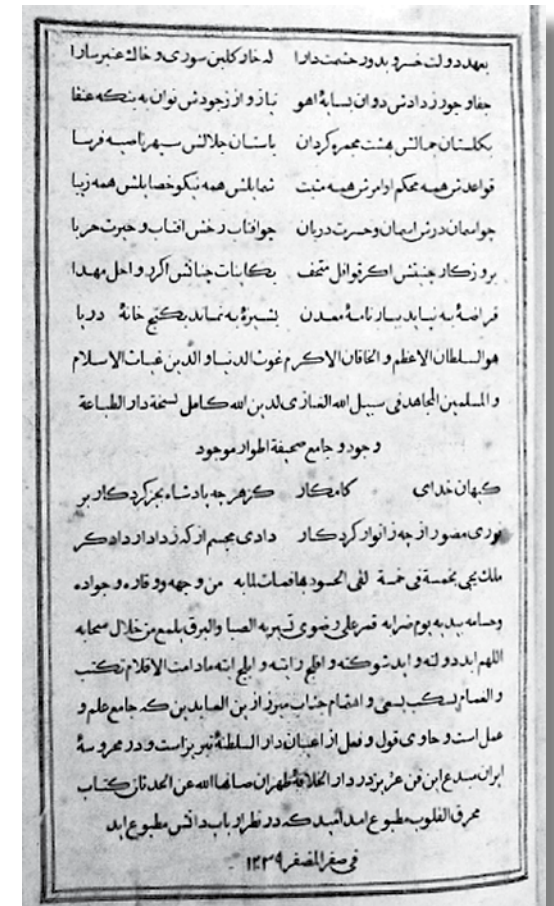 بعهد دولت خسرو بدور حشمت دارا له خار کلبن سوری و خاک عنبر سارا
جفا و جور ز دادش دوان بسایهٔ اهو نیاز و از ز جودش نوان به بنکه عنقا
بکلستان جمالش بهشت مجمره کردان باستان جلالش سپهر ناصیه فرسا
قواعدش همه محکم اوامرش همه مثبت شمایلش همه نیکو خصایلش همه زیبا
چو اسمان درش اسمان و حسرت دربان چو افتاب رخش افتاب و حیرت حربا
بروزکار جنیبتش اکر قوافل متحف بکاینات جنابش اکر رواحل مهدا
قراضهٔ به نیاید ببارنامهٔ معدن بشیزهٔ به نماند بکنج خانهٔ دریا
هو السلطان الاعظم و الخاقان الاکرم غوث الدنیا و الدین غیاث الاسلام
و المسلمین المجاهد فی سبیل الله الغازی لدین الله کامل نسخهٔ دار الطباعة
وجود و جامع صحیفة اطوار موجود
کیهان خدای کامکار کز هر چه پادشاه بجز کردکار بر
نوری مصور از چه ز انوار کردکار دادی مجسم از که ز دادار دادکر
ملك یجی بخمسة فی خمسة لقی الحسود بها فمات لما به من وجهه و وقاره و جواده
و حسامه بیدیه یوم ضرابه قمر علی رضوی تسیر به الصبا و البرق یلمع من خلال سحابه
اللهم ابد دولته و اید شوکته و افلج رایته و ابلج ایته مادامت الاقلام تکتب
و الغمام تسکب بسعی و اهتمام جناب میرزا زین العابدین که جامع علم و
عمل است و حاوی قول و فعل از اعیان دار السلطنهٔ تبریز است و در محروسهٔ
ایران مبدع این فن عزیز در دار الخلافهٔ طهران صانها الله عن الحدثان کتاب
محرق القلوب مطبوع امد امید که در نظر ارباب دانش مطبوع اید
فی صفر المضفر ۱۲۳۹